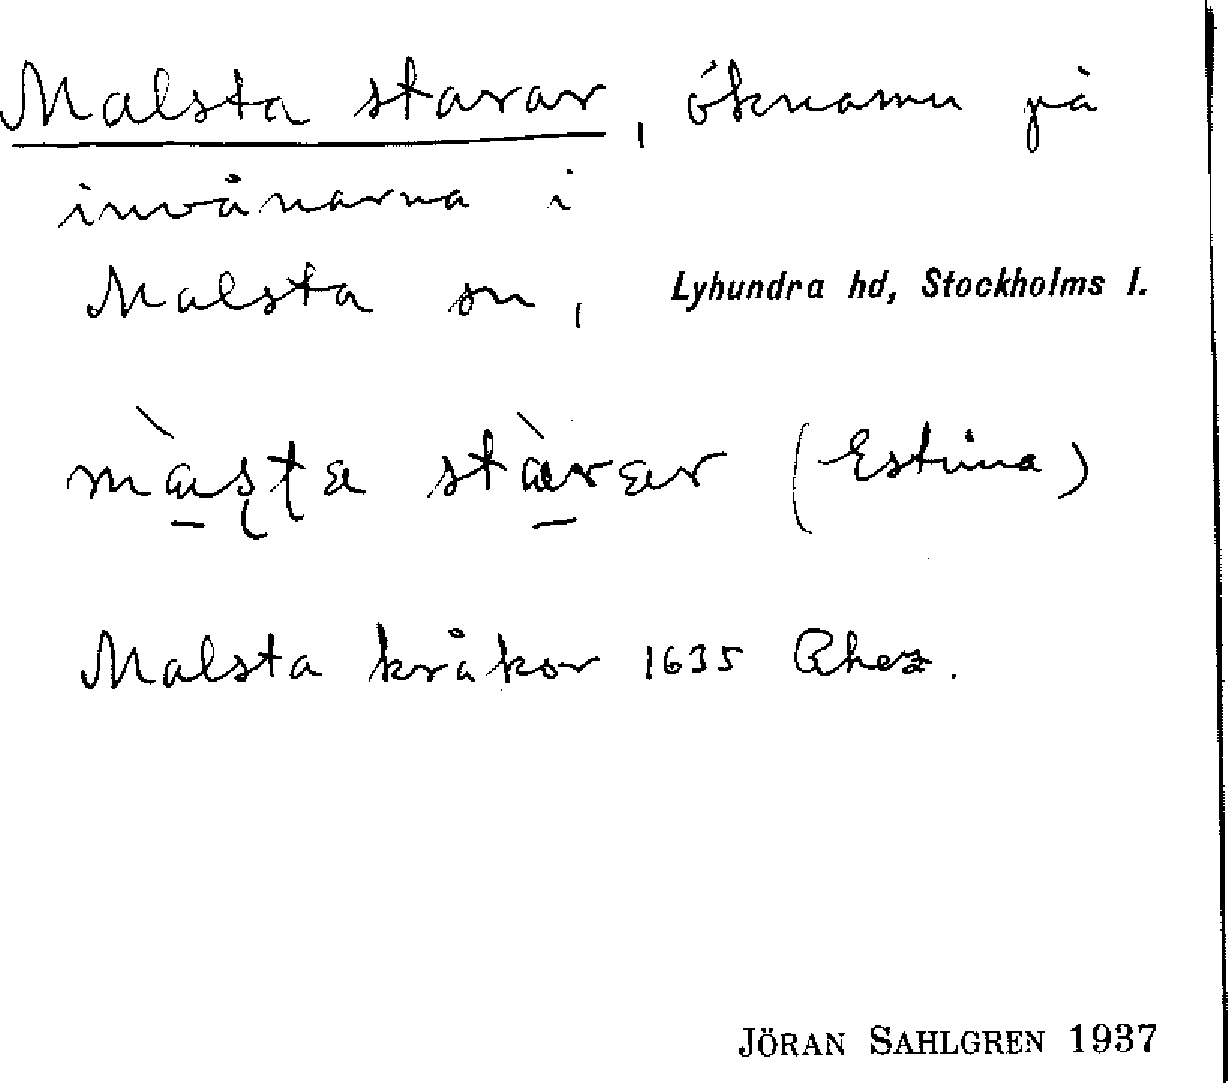 Malsta starar, öknamn på
invånarna i
Malsta sn, Lyhundra hd, Stockholms l.
màsta stàrar (Estuna)
Malsta kråkor 1635 Rhez.
JÖRAN SAHLGREN 1937